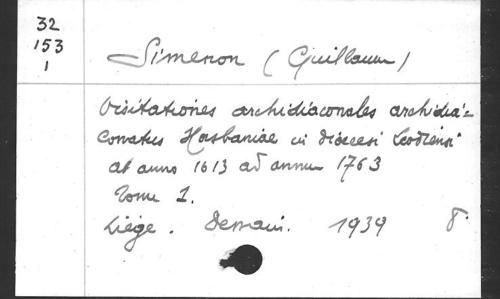 32
153
1
Simenon (Guillaume)
Visitationes archidiaconales archidia=
conatus Hasbaniae in diocesi Leodiensi
ab anno 1613 ad annum 1763
Tome 1.
Liège. Dessain. 1939 8°